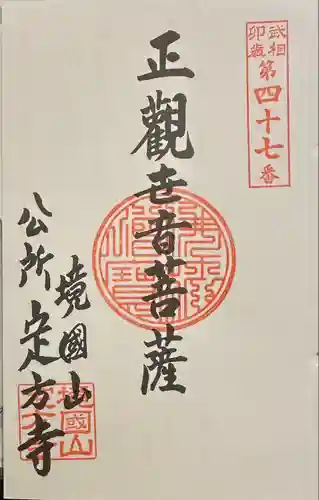 武相
卯歳
第四十七番
正觀世音菩薩
境國山
公所 定方寺